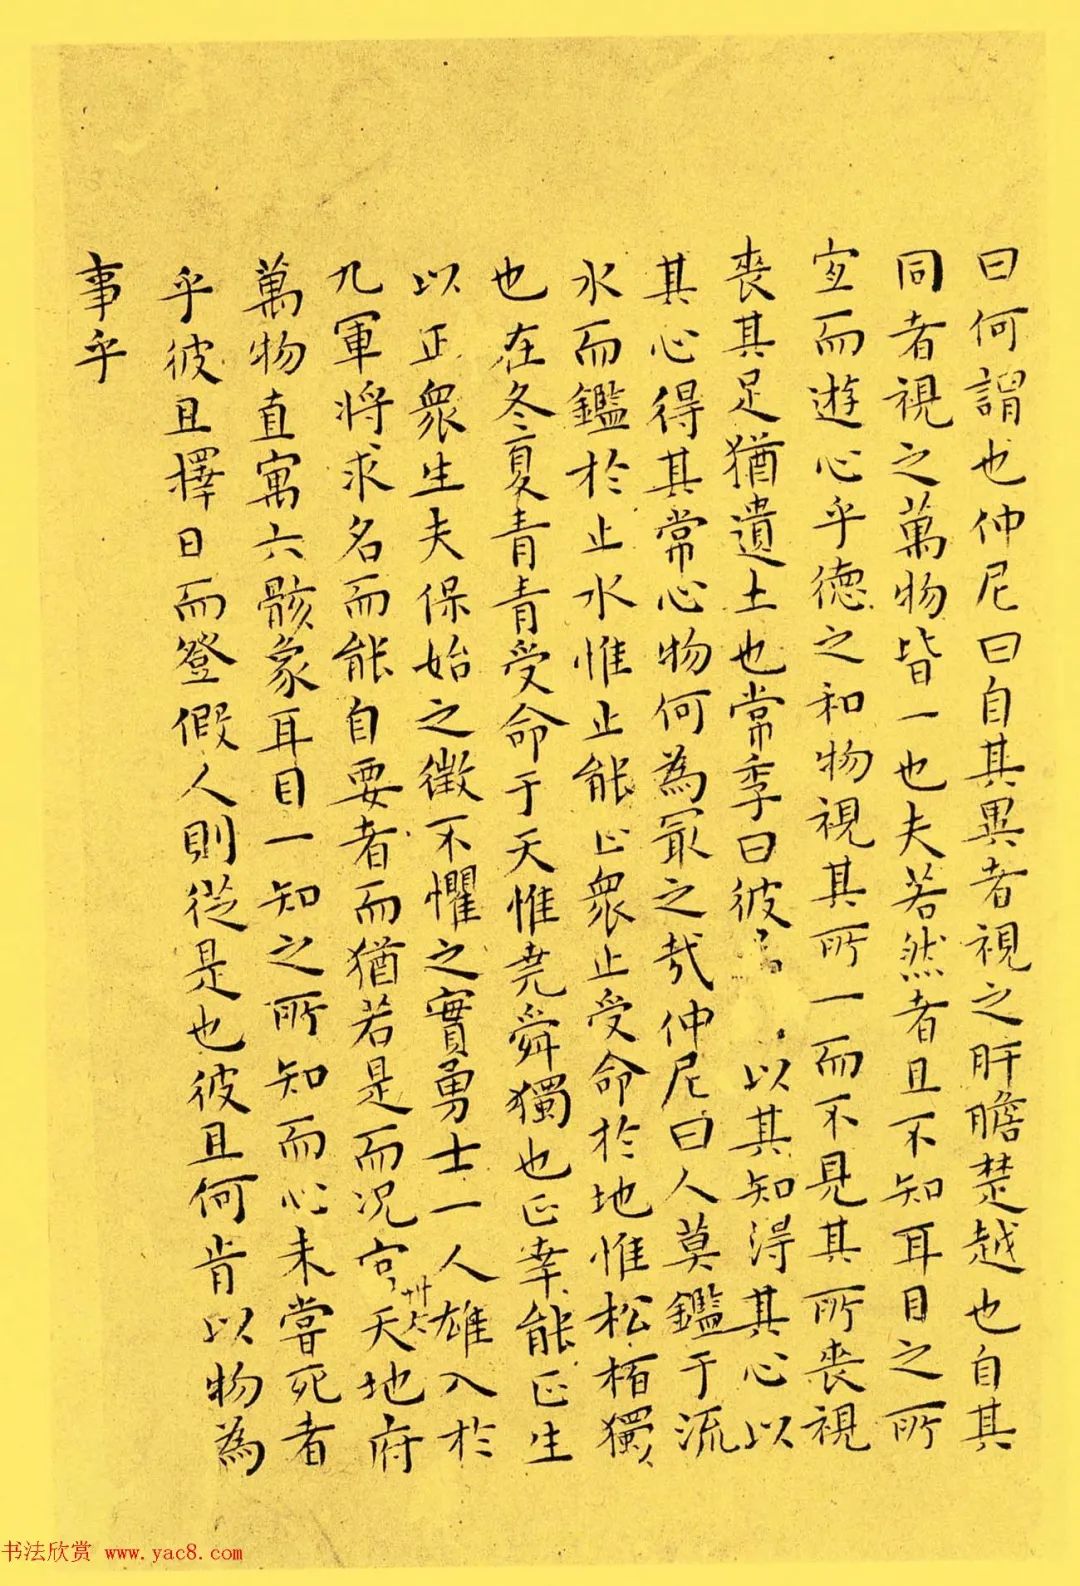 曰何謂也仲尼曰自其異者視之肝膽楚越也自其
同者視之萬物皆一也夫若然者且不知耳目之所
宜而遊心乎德之和物視其所一而不見其所喪視
喪其足猶遺土也常季曰彼以其知得其心以
其心得其常心物何為最之哉仲尼曰人莫鑑于流
水而鑑於止水惟止能止衆止受命於地惟松栢獨
也在冬夏青青受命于天惟堯舜獨也正幸能正生
以正衆生夫保始之徵不懼之實勇士一人雄入於
九軍將求名而能自要者而猶若是而况官天地府
萬物直寓六骸象耳目一知之所知而心未嘗死者
乎彼且擇日而登假人則從是也彼且何肯以物為
事乎
书法欣赏 www.yac8.com